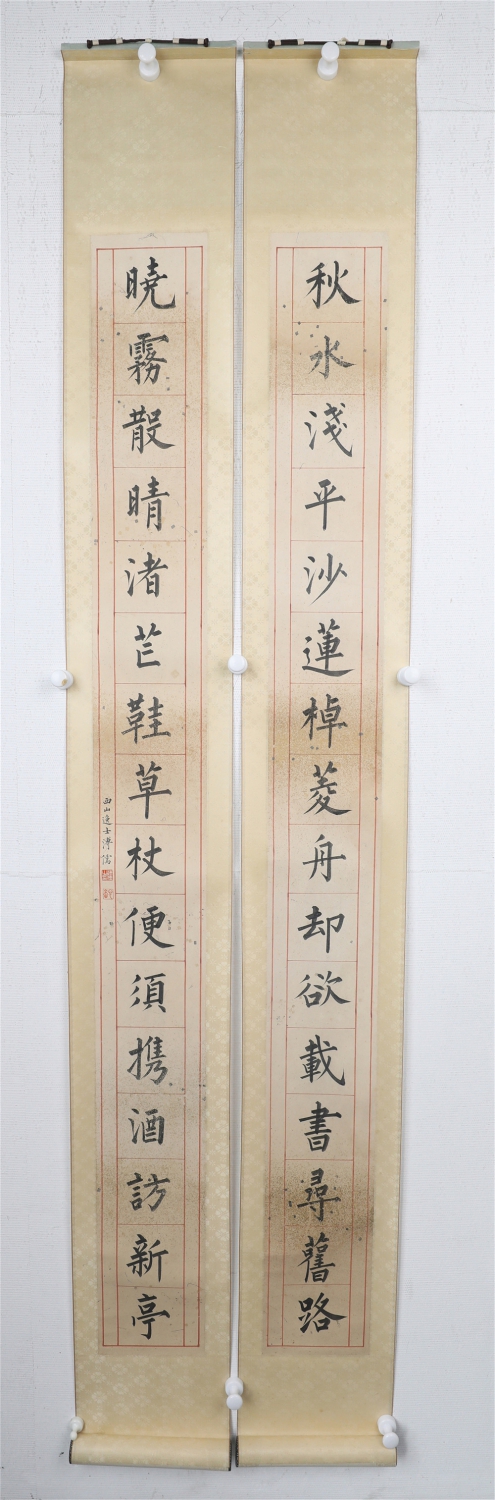 秋水淺平沙蓮棹菱舟却欲載書尋舊路
曉霧散晴渚芒鞋草杖便須携酒訪新亭
西山逸士溥儒